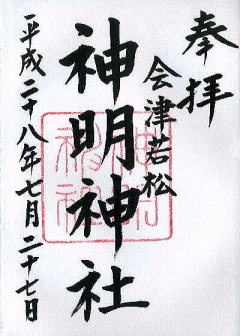 奉拝
会津若松
神明神社
平成二十八年七月二十七日